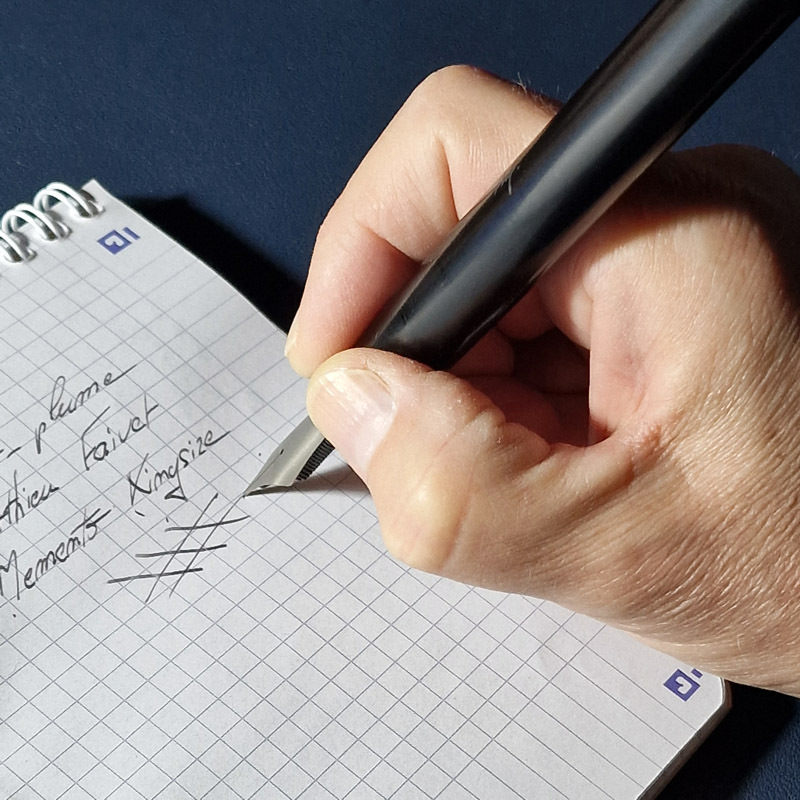 plume
thieu Faivet
Memento Kingsize